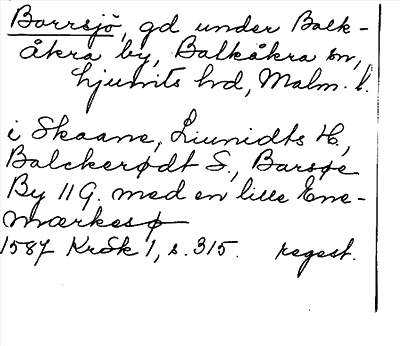 Borrsjö, gd under Balk-
åkra by, Balkåkra sn,
Ljunits hd, Malm. l.
i Skaane, Liunidts H.,
Balckerødt S., Barsøe
By 11 G. med en lille Ene-
mærkesø
1587 KrSk 1, s. 315. regest.